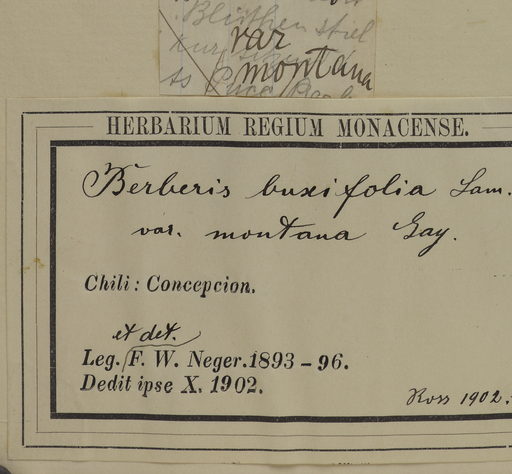 Blüthenstiel
var
montana
HERBARIUM REGIUM MONACENSE.
Berberis buxifolia Lam.
var. montana Gay.
Chili: Concepcion.
et det.
Leg. F. W. Neger. 1893-96.
Dedit ipse X. 1902.
Ross 1902.